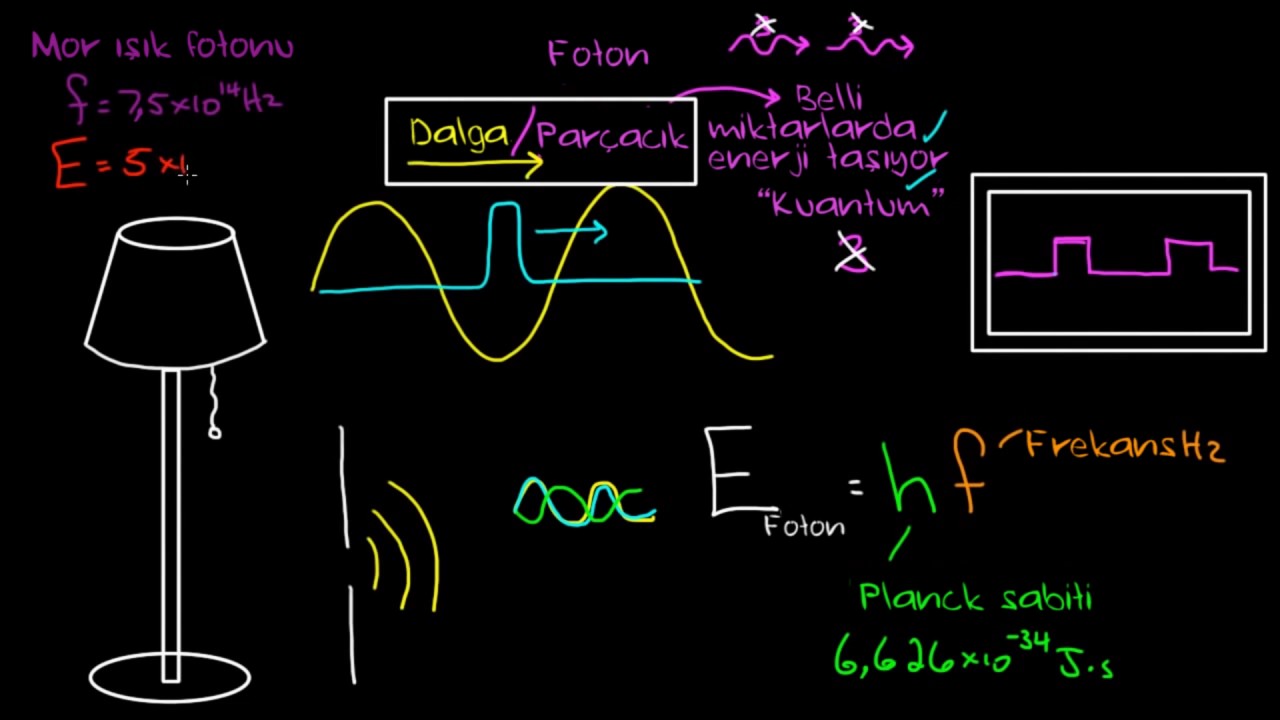 Mor ışık fotonu
f = 7,5×10¹⁴Hz
E = 5 ×1
Foton
Dalga/Parçacık
Belli
miktarlarda
enerji taşıyor
"Kuantum"
E Foton = h f
Frekans Hz
Planck sabiti
6,626×10⁻³⁴ J.s